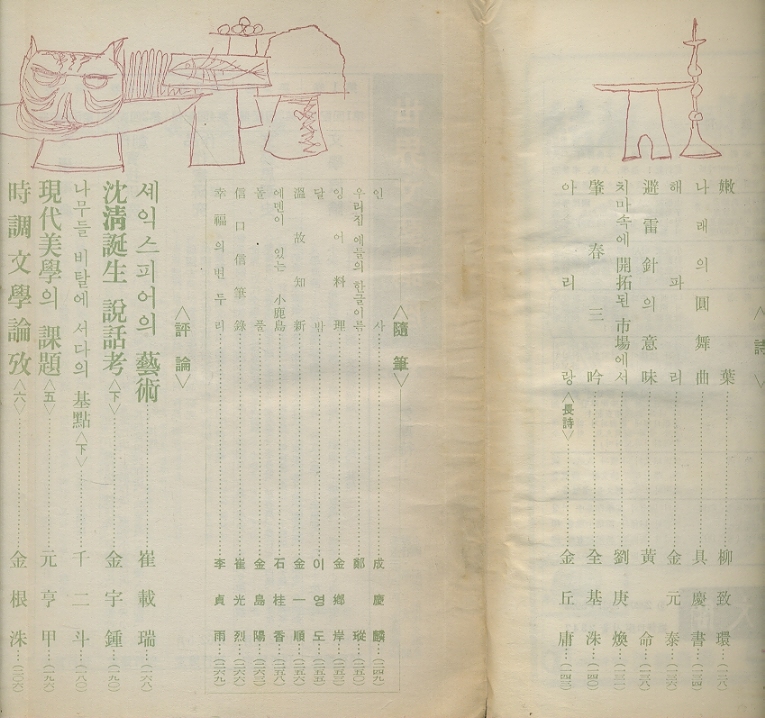 〈詩〉
嫩葉……柳致環…(一二八)
나래의 圓舞曲……具慶書…(一三四)
해파리……金元泰…(一三六)
避雷針의 意味……黃命…(一三八)
치마속에 開拓된 市場에서……劉庚煥…(一三一)
肇春三吟……全基洙…(一四〇)
아리랑〈長詩〉……金丘庸…(一四三)
〈隨筆〉
인사……成慶麟…(二四九)
우리집 애들의 한글이름……鄭瑽…(二五〇)
잉어料理……金鄕岸…(二五三)
달밤……이영도…(二五五)
溫故知新……金一順…(二五六)
에덴이 있는 小鹿島……石桂香…(二五八)
들풀……金島陽…
信口信筆錄……崔光烈…(二六六)
幸福의 변두리……李貞雨…(二六九)
〈評論〉
셰익스피어의 藝術……崔載瑞…(一六八)
沈淸誕生 說話考〈下〉……金宇鍾…(一九〇)
나무들 비탈에 서다의 基點〈下〉……千二斗…(一八〇)
現代美學의 課題〈五〉……元亨甲…(一九六)
時調文學論攷〈六〉……金根洙…(二〇六)